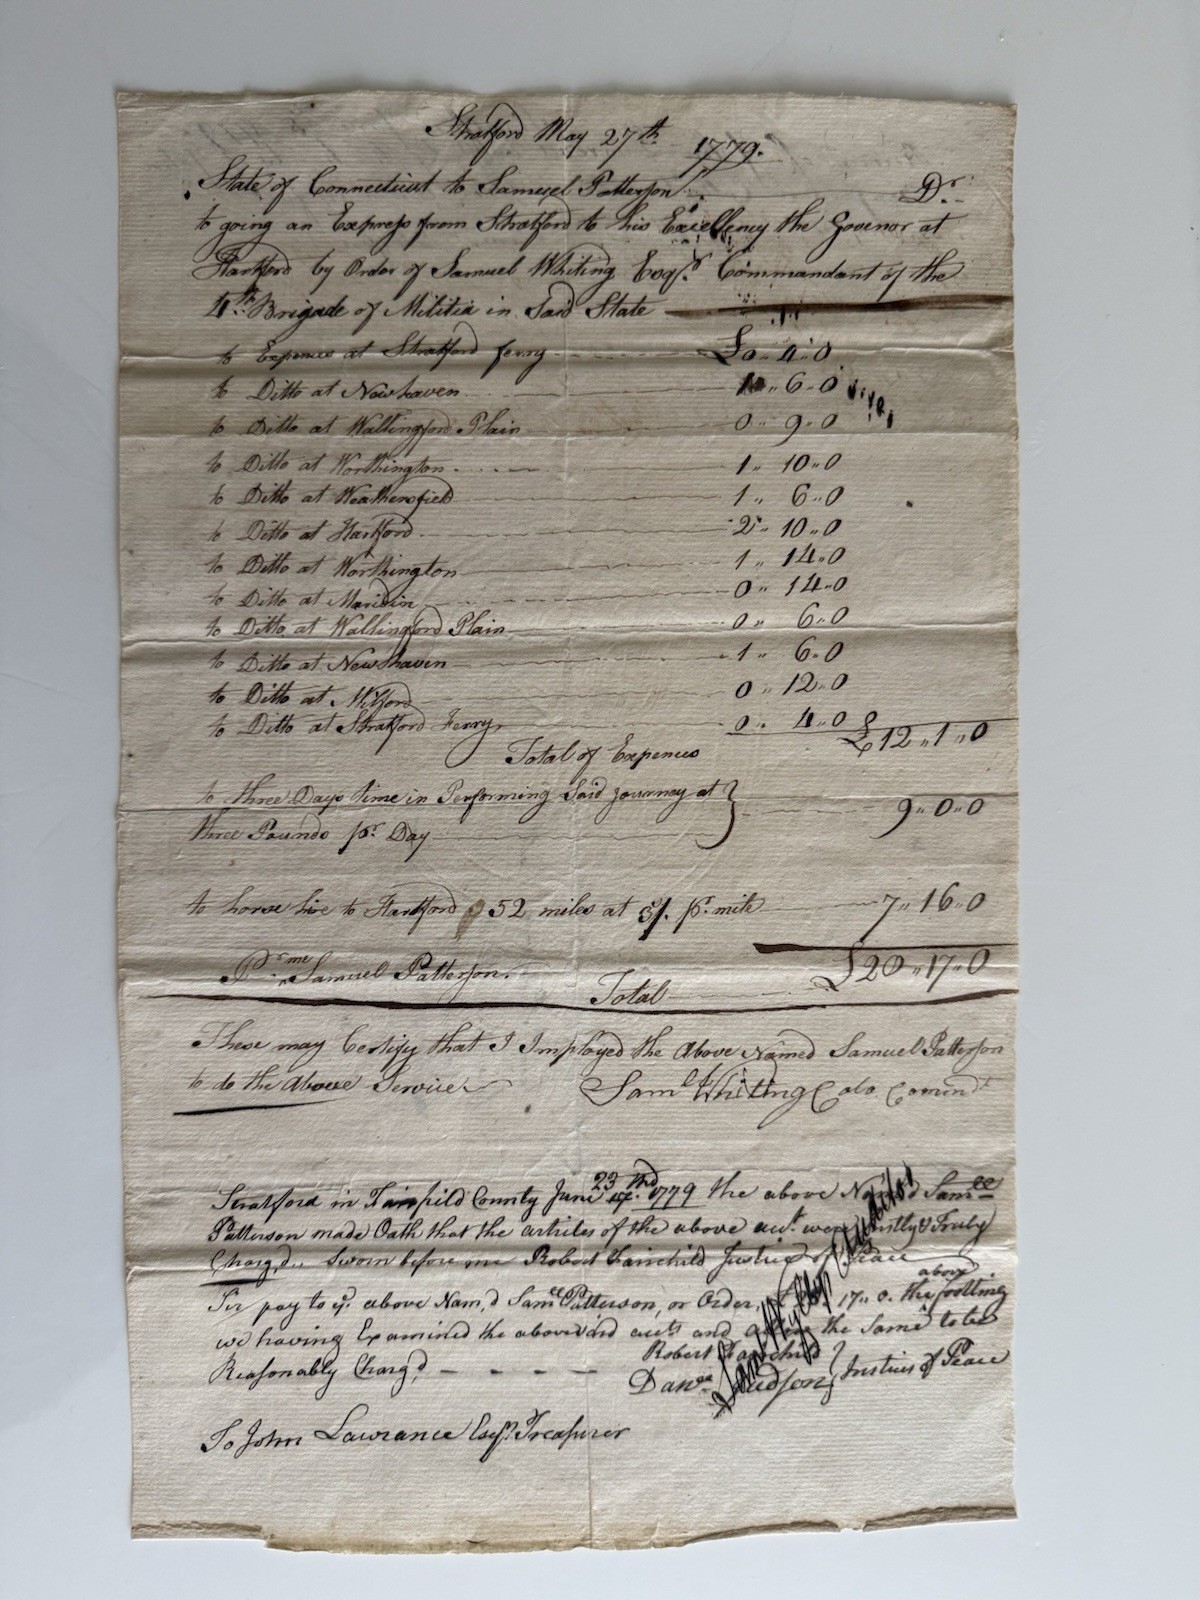 Stratford May 27th 1779.
State of Connecticut to Samuel Patterson Dr.
to going an Express from Stratford to his Excellency the Govenor at
Hartford by Order of Samuel Whiting Esqr. Commandant of the
4th Brigade of Militia in Said State
to Expences at Stratford ferry £0 ,, 4 ,, 0
to Ditto at Newhaven 1 ,, 6 ,, 0
to Ditto at Wallingford Plain 0 ,, 9 ,, 0
to Ditto at Worthington 1 ,, 10 ,, 0
to Ditto at Weathersfield 1 ,, 6 ,, 0
to Ditto at Hartford 2 ,, 10 ,, 0
to Ditto at Worthington 1 ,, 14 ,, 0
to Ditto at Meridin 0 ,, 14 ,, 0
to Ditto at Wallingford Plain 0 ,, 6 ,, 0
to Ditto at Newhaven 1 ,, 6 ,, 0
to Ditto at Milford 0 ,, 12 ,, 0
to Ditto at Stratford Ferry 0 ,, 4 ,, 0
Total of Expences £12 ,, 1 ,, 0
to three Days time in Performing Said Journay at
three Pounds pr. Day 9 ,, 0 ,, 0
to horse hire to Hartford 52 miles at 3/. pr. mile 7 ,, 16 ,, 0
Pr me Samuel Patterson. Total £20 ,, 17 ,, 0
These may Certify that I Imployed the Above Named Samuel Patterson
to do the Above Service Saml Whiting Colo. Comm'dt
Stratford in Fairfield County June 23rd 1779 the above Nam'd Samll
Patterson made Oath that the articles of the above acct. were Justly & Truly
Charg,d.. Sworn before me Robert Fairchild Justice of Peace
Sir pay to ye. above Nam,d Saml Patterson, or Order, 17 ,, 0. the above footing
we having Examined the above said acct and the Same to be
Reasonably Charg'd - - - - - Robert Fairchild
Danll Judson Justices of Peace
To John Lawrance Esqr. Treasurer